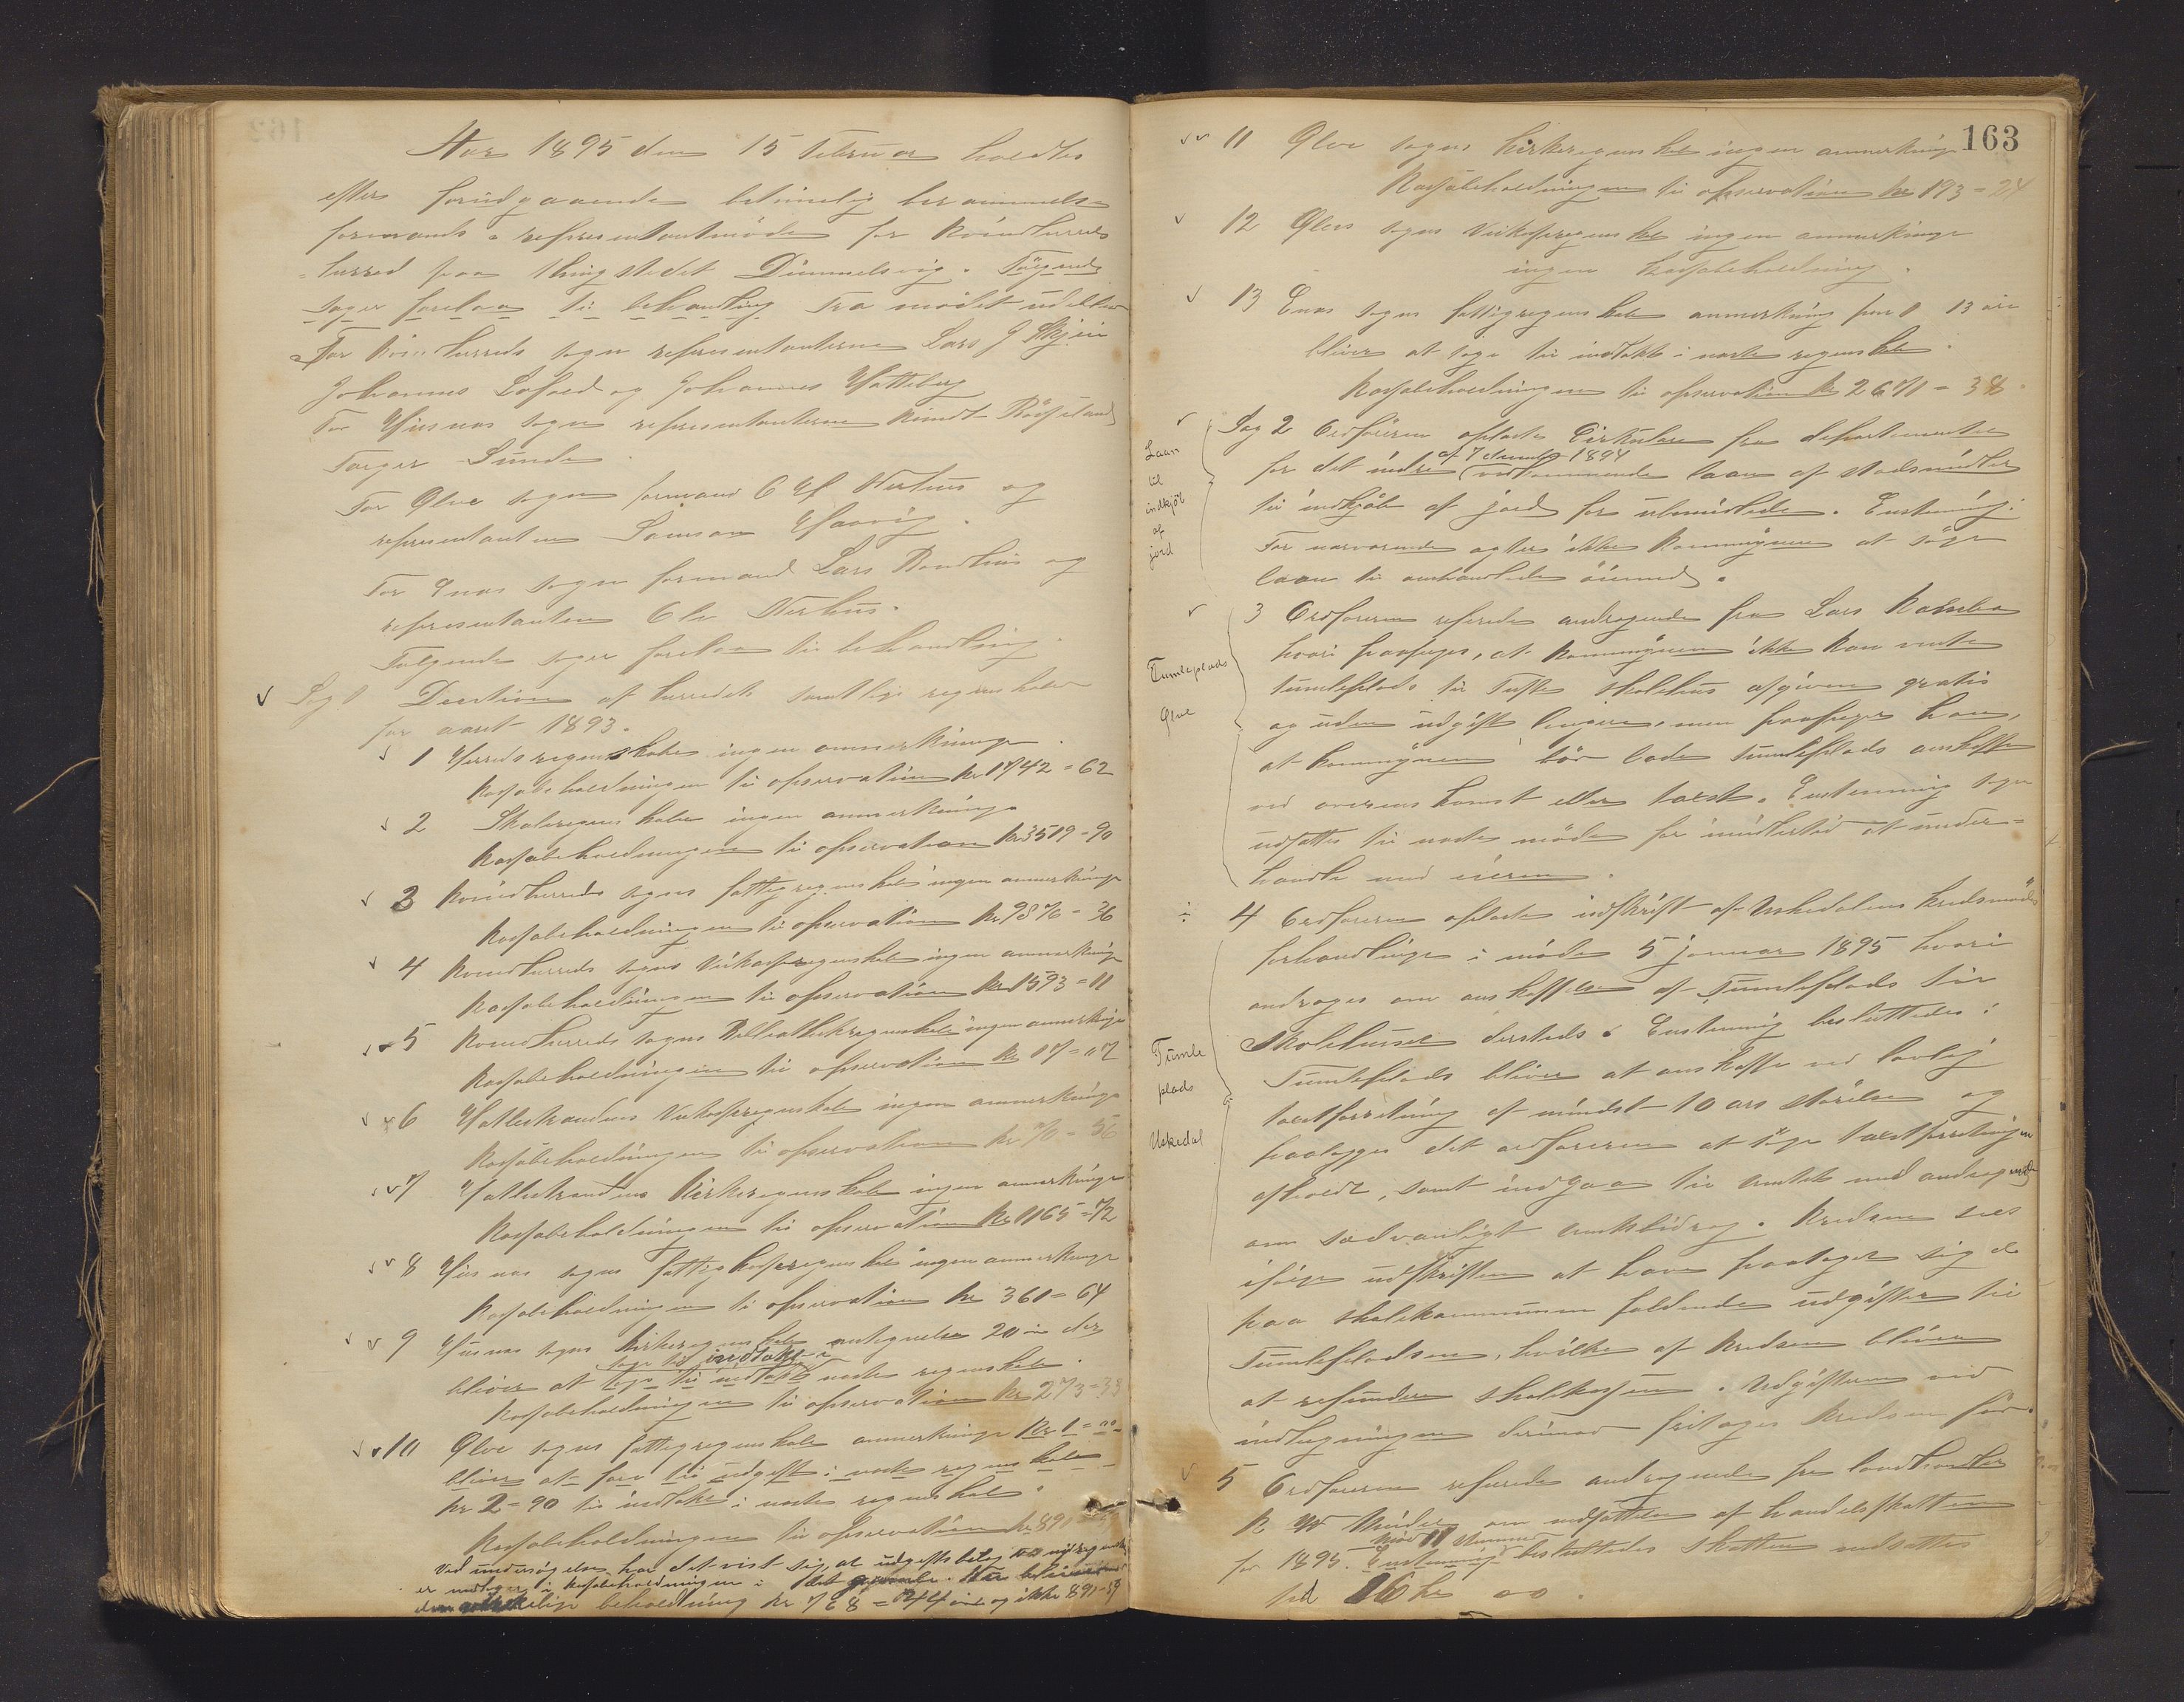 Aar 1895 den 15 Februar holdtes
efter forudgaaende betimelig berammelse
formands & representantmøde for Kvindherreds
herred paa thingstedet Dimmelsvig. Følgende
sager forelaa til behandling Fra mødet udeblev
For Kvindherreds sogn representanterne Lars J Skjeie
Johannes Lofald og Johannes Hatteberg
For Husnæs sogn representanterne Knudt Røseland
Torger Sunde.
For Ølve sogn formand O H Nerhus og
representanten Samson Haavig.
For Enæs sogn formand Lars Bondhus og
representanten Ole Nerhus.
Følgende sager forelaa til behandling.
Sag 1 Decition af herredets samtlige regnskaber
for aaret 1893.
1 Herredsregnskabet ingen anmerkninge.
Kassabeholdningen til observation kr 1742=62
2 Skoleregnskabet ingen anmerkninge
Kassabeholdningen til observation kr 3519=90
3 Kvindherreds sogns fattigregnskab ingen anmerkninge
Kassabeholdningen til observation kr 9876=36
4 Kvindherreds sogns Veikasseregnskab ingen anmerkninge
Kassabeholdningen til observation kr 1593=11
5 Kvindherreds sogns Bibliothekregnskab ingen anmerkninge
Kassabeholdningen til observation kr 17=07
6 Hatlestrandens Veikasseregnskab ingen anmerkninge
Kassabeholdningen til observation kr 76=56
7 Hatlestrandens Kirkeregnskab ingen anmerkninge
Kassabeholdningen til observation kr 1165=72
8 Husnæs sogns fattigkasseregnskab ingen anmerkninge
Kassabeholdningen til observation kr 361=64
9 Husnæs sogns kirkeregnskab antegnelse 20 øre der
tage til indtægt i
bliver at tage til indtægt næste regnskab.
Kassabeholdningen til observation kr 273=33
10 Ølve sogns fattigregnskab anmerkninge kr 1=00
bliver at føre til udgift i næste regnskab
kr 2=90 til indtækt i næste regnskab.
Kassabeholdningen til observation kr 891=59
Ved undersøgelse har det vist sig, at udgifts beløb
er medtaget i kassabeholdningen i det
beholdning kr 768=44 øre og ikke 891=59
163
11 Ølve sogns kirkeregnskab ingen anmerkninge
Kassabeholdningen til observation kr 193=24
12 Ølves sogns Veikasseregnskab ingen anmerkninge
ingen kassabeholdning.
13 Enæs sogns fattigregnskab anmerkning post 1 13 øre
bliver at tage til indtækt i næste regnskab.
Kassabeholdningen til observation kr 2671=38.
Laan
til
indkjöb
af
jord
Sag 2 Ordføreren oplæste Cirkulære fra departementet
af 7 december 1894
for det indre vedkommende laan af statsmidler
til indkjøb af jord for ubemidlede. Enstemmig.
For nærværende agter ikke kommunen at søge
laan til omhandlede øiemed.
Tumleplads
Ølve
3 Ordføreren referede andragende fra Lars
hvori paasiges, at kommunen ikke kan vente
tumleplads til Tufte skolehus afgiven gratis
og uden udgift længere, men paasiger han,
at kommunen bør lade tumleplads anskaffe
ved overenskomst eller taxst. Enstemmig sagen
udsættes til næste møde for imidlertid at under=
handle med eieren.
4 Ordføreren oplæste udskrift af Uskedalens kredsmøde
forhandlinge i møde 5 januar 1895 hvori
andrages om anskaffelse af Tumleplads til
Tumle
plads
Uskedal
Skolehuset dersteds. Enstemmig besluttedes:
Tumleplads bliver at anskaffe ved lovlig
taxtforretning af mindst 10 ars størelse og
paalægges det ordføreren at søge taxtforretningen
afholdt, samt indgaa til Amtet med andragende
om sædvanligt amtsbidrag. Kredsen sees
ifølge udskriften at have paataget sig de
paa skolekommunen faldende udgifter til
Tumlepladsen, hvilke af kredsen bliver
at refundere skolekassen. Udgifterne ved
indhegningen derimod fritages kredsen for.
5 Ordføreren referede andragende fra landhandler
R W Meidell om nedsættelse af handelsskatten
mod 11 stemmer
for 1895. Enstemmig besluttedes skatten nedsattes
til 16 kr 00.